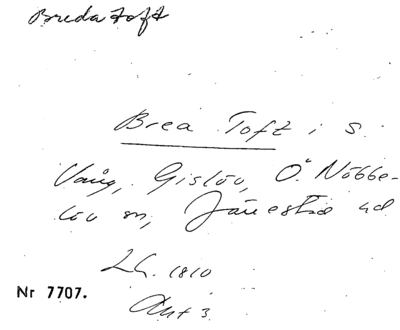 Breda toft
Brea Toft i S.
Vång, Gislöv, Ö. Nöbbe-
löv sn, Järrestad hd
LH. 1810
Akt 3
Nr 7707.